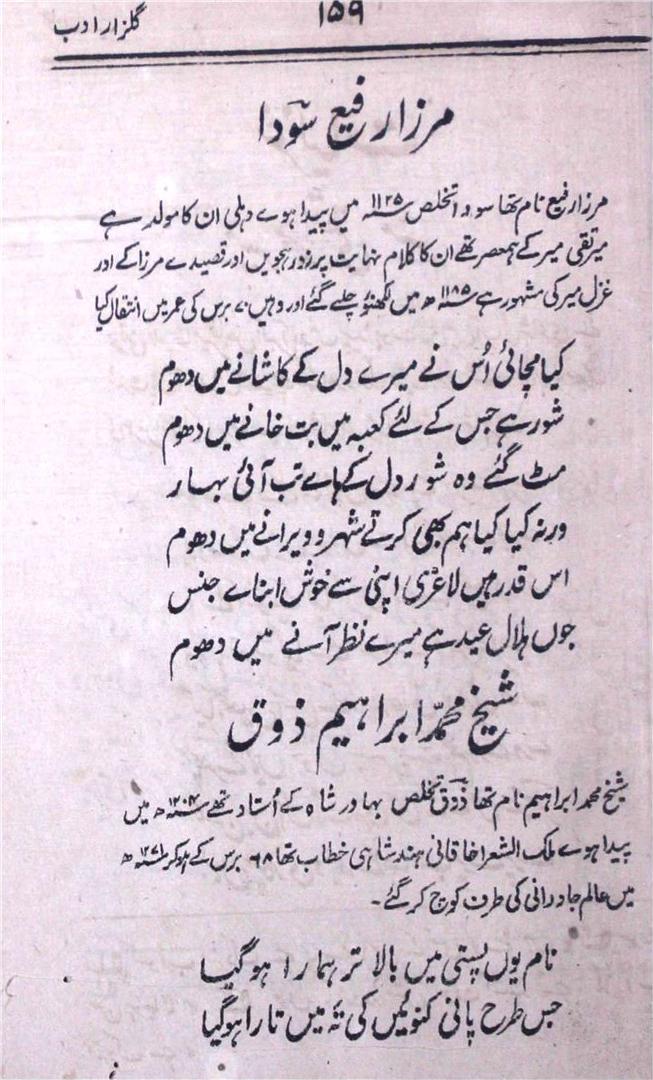 گلزار ادب
۱۵۹
مرزا رفیع سودا
مرزا رفیع نام تھا سودا تخلص ۱۱۲۵ھ میں پیدا ہوے دہلی ان کا مولد ہے
میر تقی میر کے ہمعصر تھے ان کا کلام نہایت پر زور ہجویں اور قصیدے مرزا کے اور
غزل میر کی مشہور ہے ۱۱۸۵ھ میں لکھنؤ چلے گئے اور وہیں ۷۰ برس کی عمر میں انتقال کیا
کیا مچائی اُس نے میرے دل کے کاشانے میں دھوم
شور ہے جس کے لئے کعبہ میں بت خانے میں دھوم
مٹ گئے وہ شور دل کے ہاے تب آئی بہار
ورنہ کیا کیا ہم بھی کرتے شہر و ویرانے میں دھوم
اس قدر ہیں لاغری اپنی سے خوش ابناے جنس
جوں ہلال عید ہے میرے نظر آنے میں دھوم
شیخ محمد ابراہیم ذوق
شیخ محمد ابراہیم نام تھا ذوق تخلص بہادر شاہ کے اُستاد تھے ۱۲۰۴ھ میں
پیدا ہوے ملک الشعرا خاقانی ہند شاہی خطاب تھا ۶۸ برس کے ہوکر ۱۲۷۱ھ
میں عالم جاودانی کی طرف کوچ کر گئے۔
نام یوں پستی میں بالا تر ہمارا ہوگیا
جس طرح پانی کنوئیں کی تہ میں تارا ہوگیا